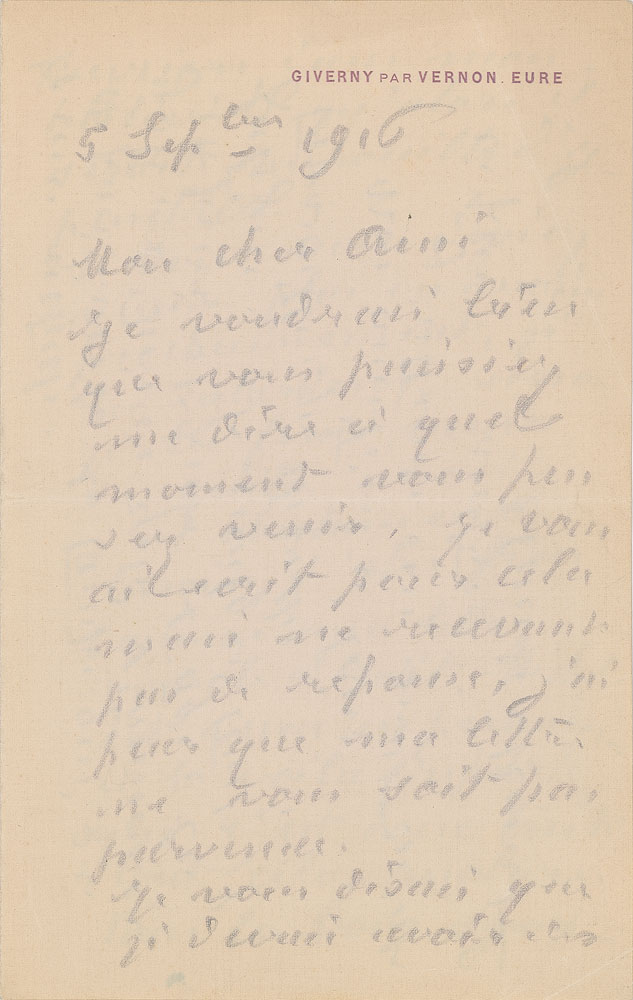 GIVERNY PAR VERNON. EURE
5 Septbre 1916
Mon cher Ami
Je voudrais bien
que vous puissiez
me dire à quel
moment vous pen
sez venir, je vous
ai écrit pour cela
mais ne recevant
pas de reponse, j'ai
peur que ma lettre
ne vous soit pas
parvenue.
Je vous disais que
je devais avoir